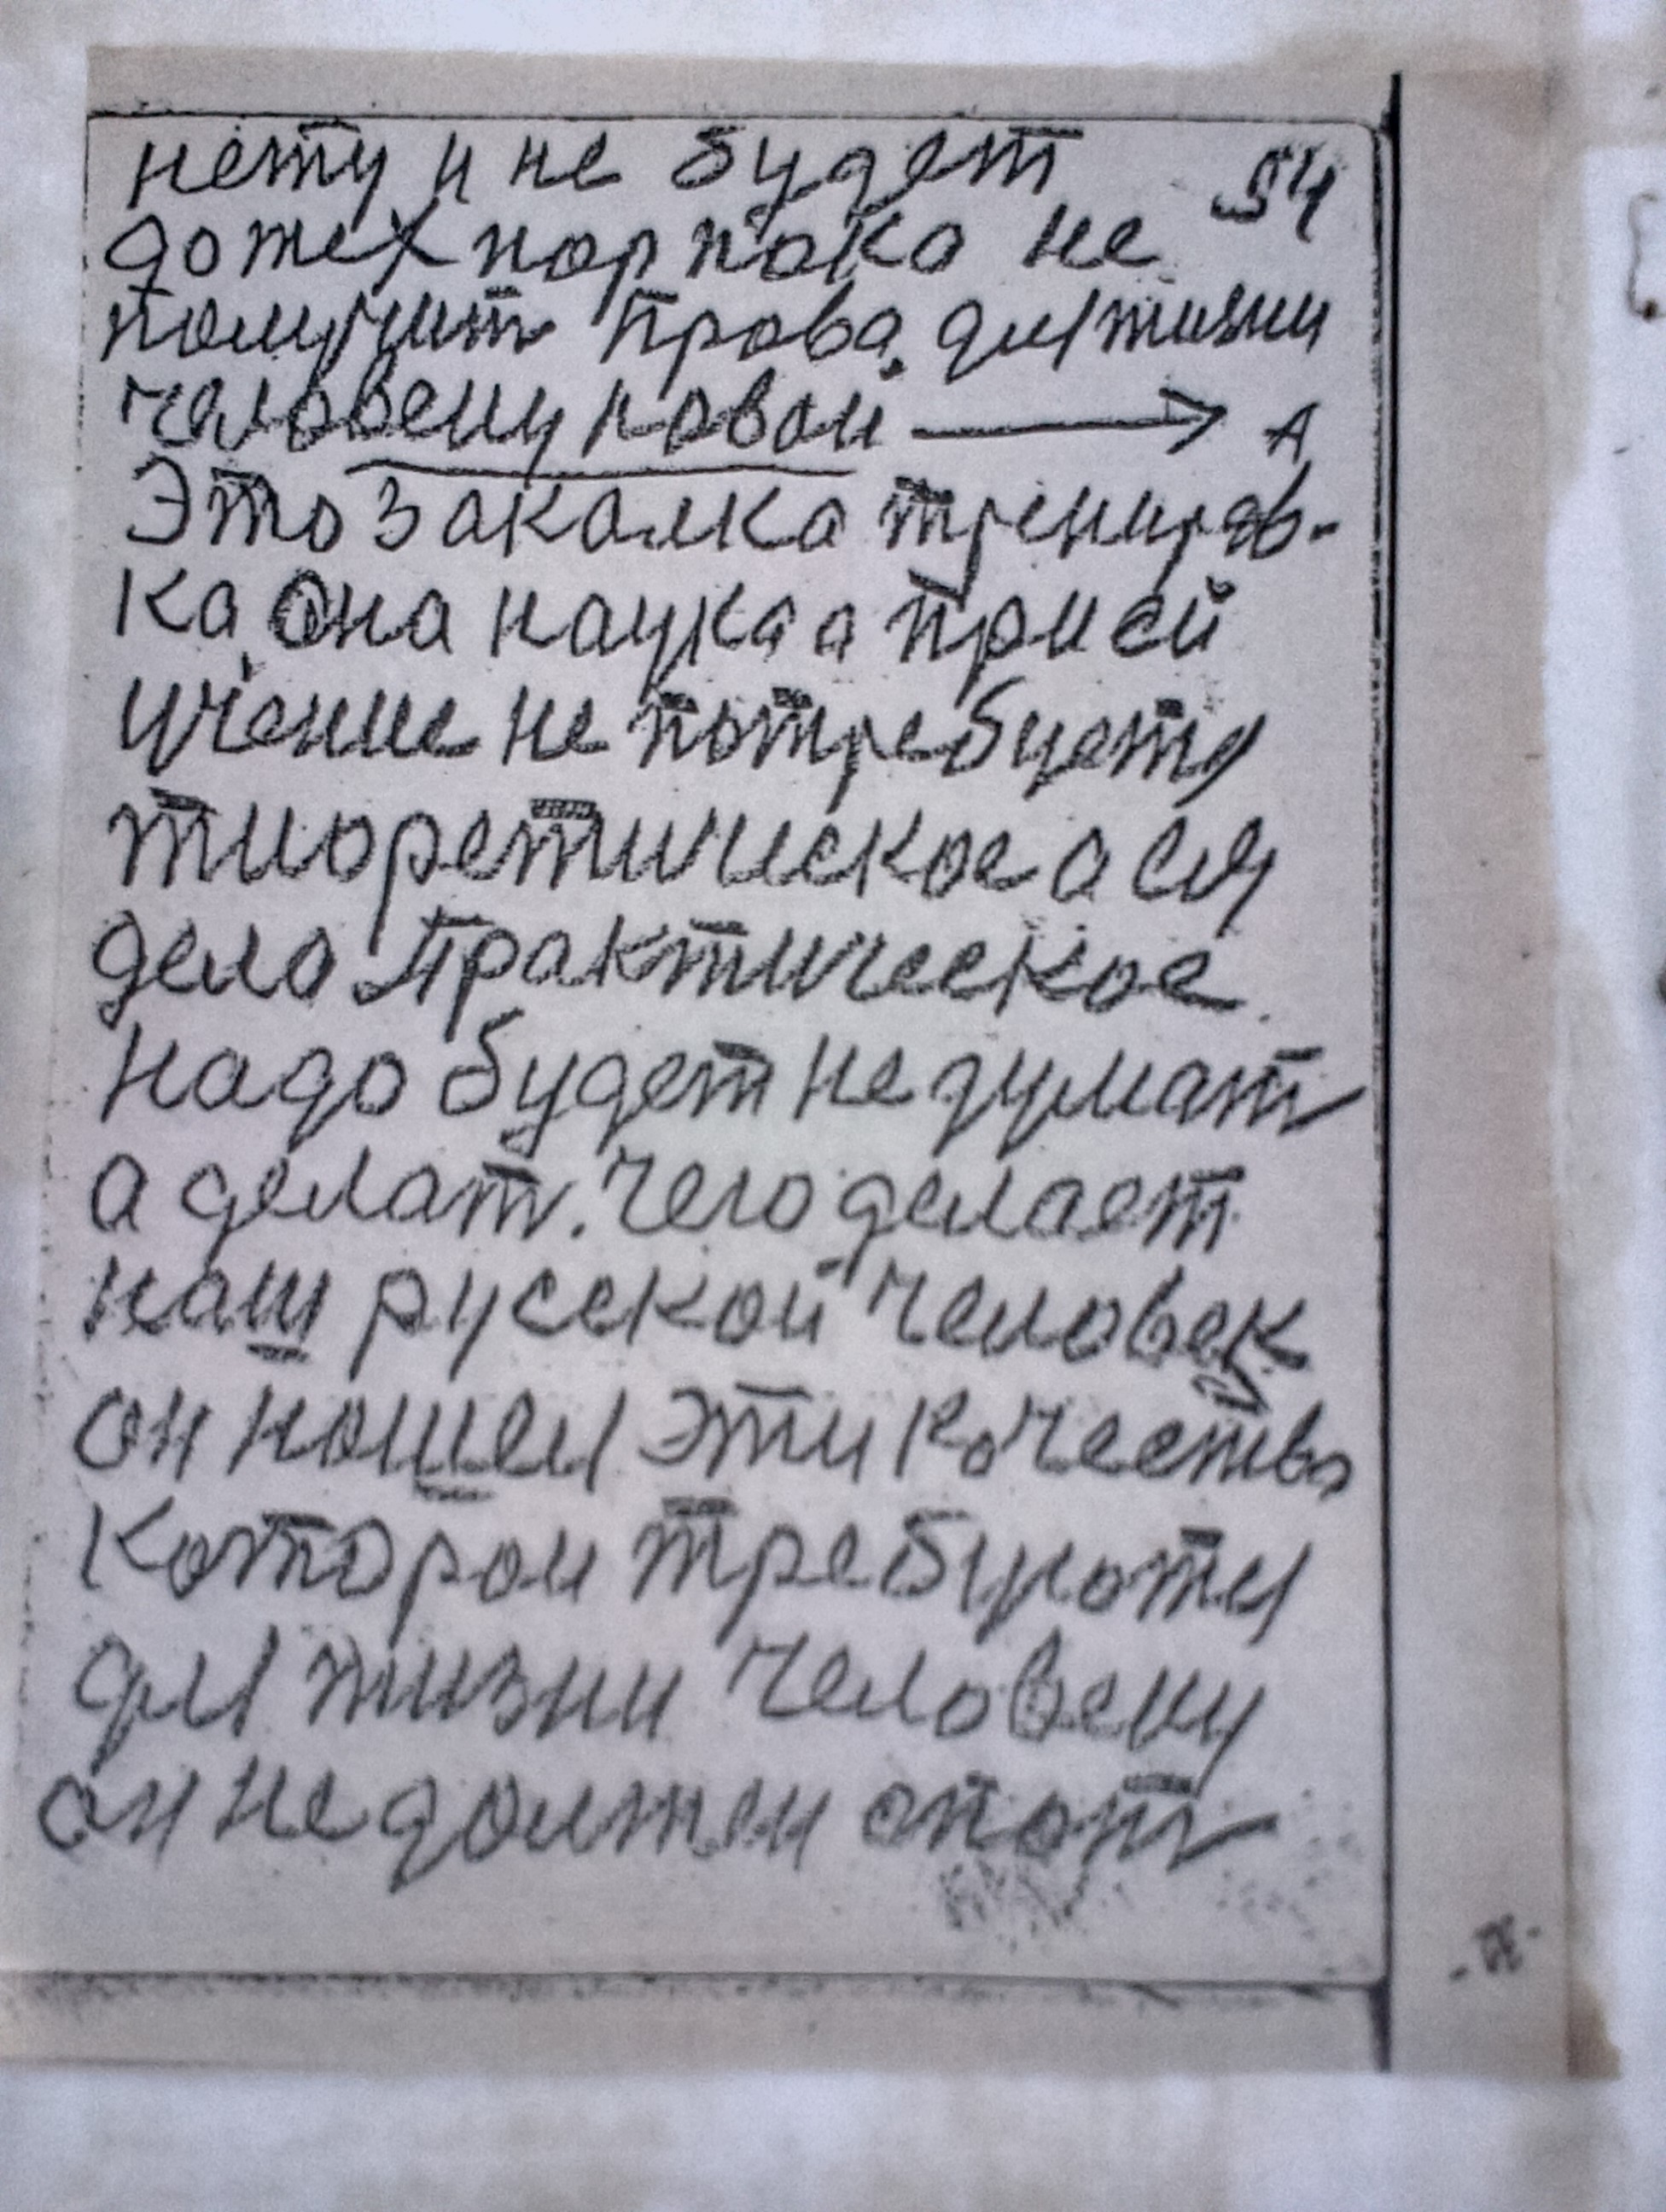 нету и не будет 54
до тех пор пока не
получит права для жизни
человеку новой → А
Это закалка трениров-
ка она наука а при ей
учение не потребуетя
тиоретическое а
дело Практическое
надо будет не думат
а делат. чего делает
наш русской человек
он нашел эти качества
которои требуютя
для жизни человеку
он не должен